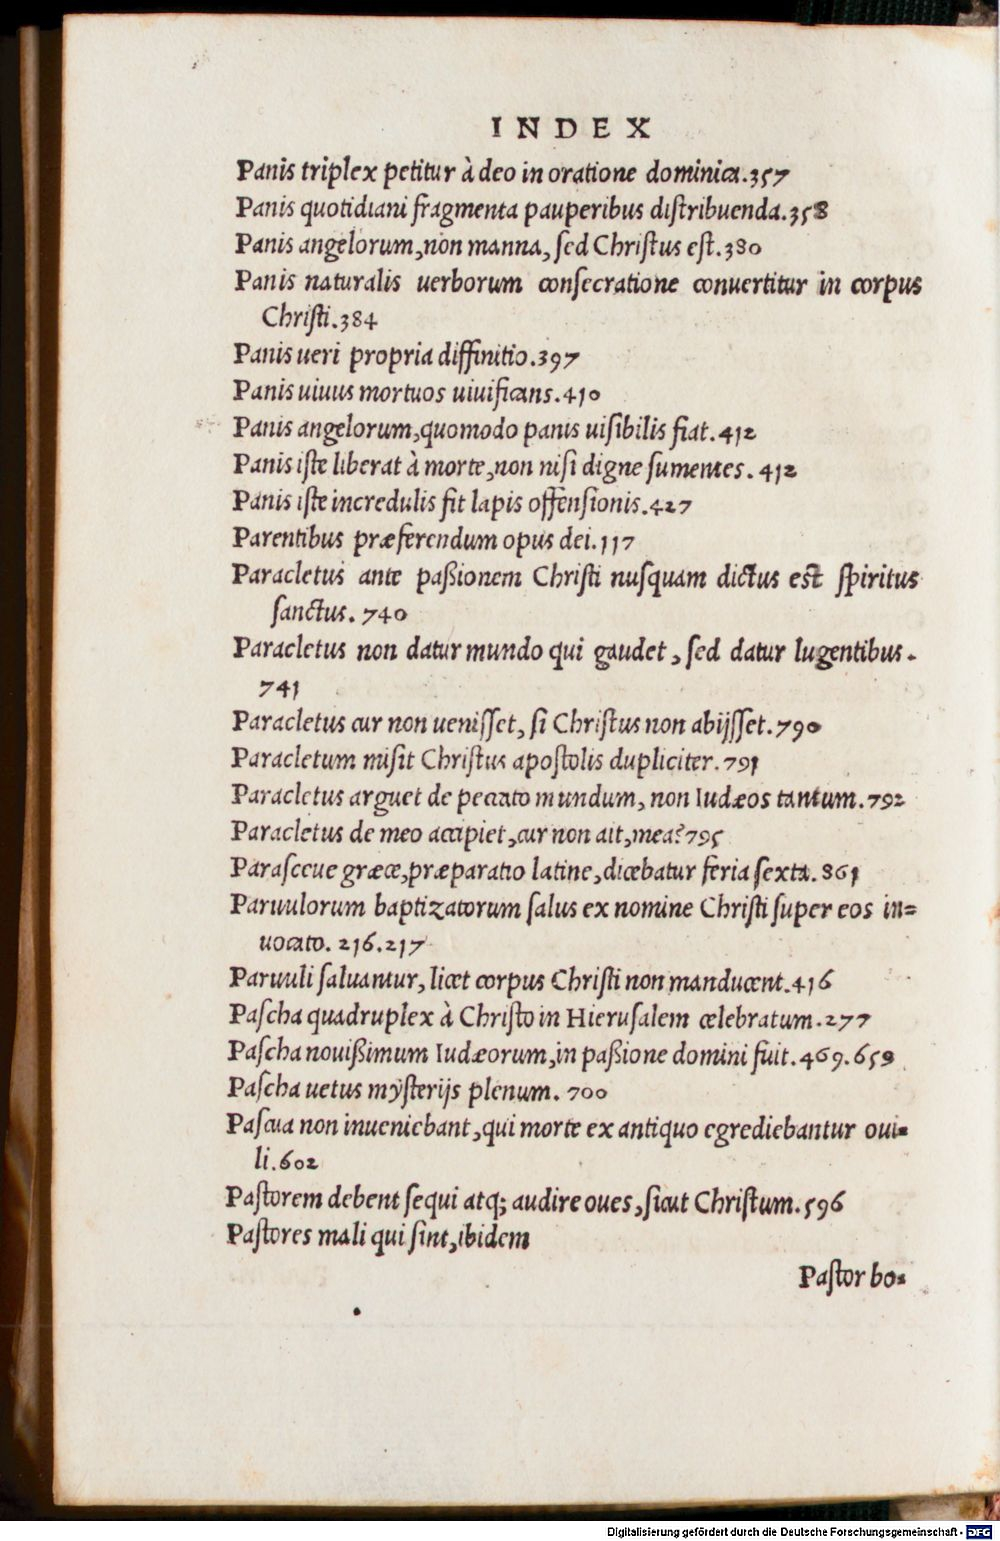 INDEX
Panis triplex petitur à deo in oratione dominica.357
Panis quotidiani fragmenta pauperibus diſtribuenda.358
Panis angelorum,non manna, ſed Chriſtus eſt.380
Panis naturalis uerborum conſecratione conuertitur in corpus
Chriſti.384
Panis ueri propria diffinitio.397
Panis uiuus mortuos uiuificans.410
Panis angelorum,quomodo panis uiſibilis fiat.412
Panis iſte liberat à morte,non niſi digne ſumentes. 412
Panis iſte incredulis fit lapis offenſionis.427
Parentibus præferendum opus dei.117
Paracletus ante paßionem Chriſti nuſquam dictus est ſpiritus
ſanctus. 740
Paracletus non datur mundo qui gaudet, ſed datur lugentibus.
741
Paracletus cur non ueniſſet, ſi Chriſtus non abijſſet.790
Paracletum miſit Chriſtus apoſtolis dupliciter.791
Paracletus arguet de peccato mundum, non Iudæos tantum.792
Paracletus de meo accipiet,cur non ait,mea?795
Paraſceue græce,præparatio latine,dicebatur feria ſexta.861
Paruulorum baptizatorum ſalus ex nomine Chriſti ſuper eos in=
uocato. 216.217
Paruuli ſaluantur, licet corpus Chriſti non manducent.416
Paſcha quadruplex à Chriſto in Hieruſalem celebratum.277
Paſcha nouißimum Iudæorum,in paßione domini fuit.469.659
Paſcha uetus myſterijs plenum. 700
Paſcua non inueniebant,qui morte ex antiquo egrediebantur oui=
li.602
Paſtorem debent ſequi atq; audire oues, ſicut Chriſtum.596
Paſtores mali qui ſint,ibidem
Paſtor bo=
Digitalisierung gefördert durch die Deutsche Forschungsgemeinschaft - DFG